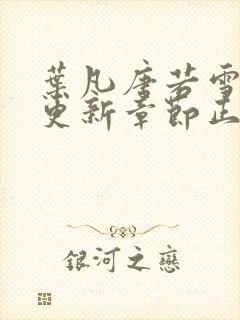 葉凡唐若雪
更新章節正
銀河之戀